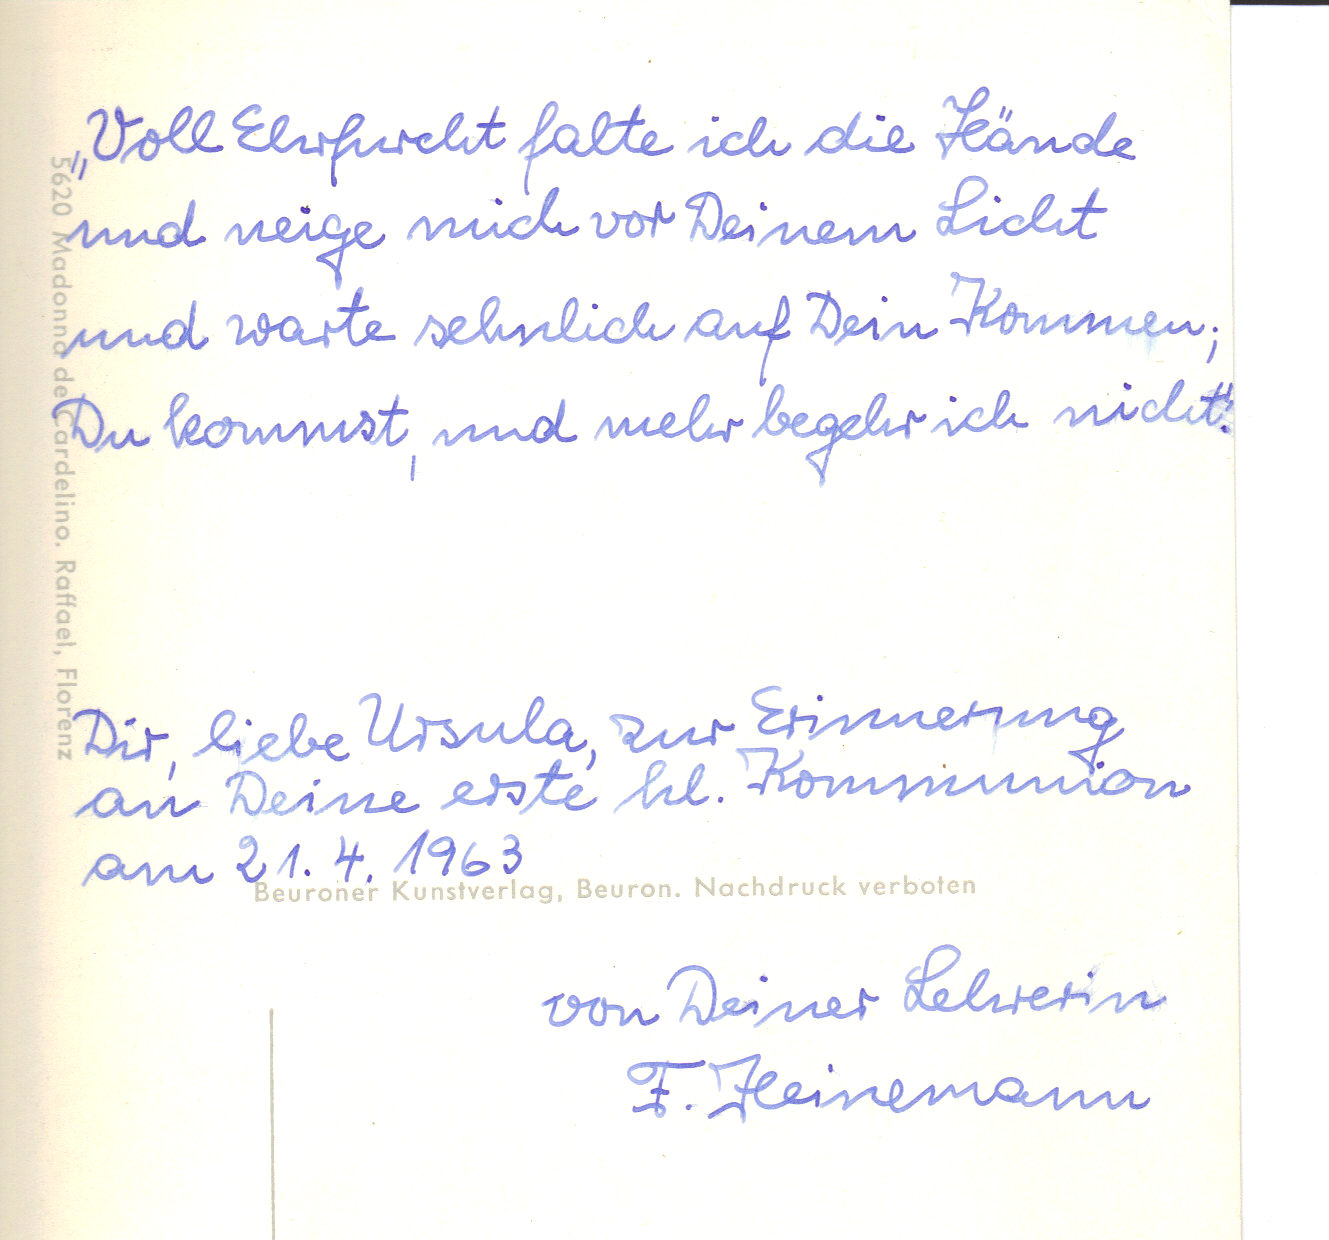 „Voll Ehrfurcht falte ich die Hände
und neige mich vor Deinem Licht
und warte sehnlich auf Dein Kommen;
Du kommst, und mehr begehr ich nicht".
Dir, liebe Ursula, zur Erinnerung
an Deine erste hl. Kommunion
am 21. 4. 1963
Beuroner Kunstverlag, Beuron. Nachdruck verboten
von Deiner Lehrerin
F. Heinemann
5620 Madonna de Cardelino. Raffael, Florenz